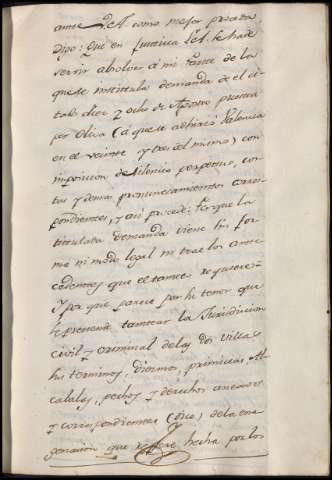 ante V.A. como mejor proceda
Digo: Que en Justicia V.A. se ha de
servir absolver a mi Parte de la
que se intitula demanda de el ci-
tado diez y ocho de Agosto puesta
por Oliva (a que se adhirió Valencia
en el veinte y tres del mismo) con
imposicion de silencio perpetuo, cos-
tas y demas pronunciamientos corres-
pondientes, y asi procede: Porque la
titulada demanda viene sin for-
ma ni modo legal ni trae los ante-
cedentes que el tanteo requiere=
Y por que parece por su tenor que
se pretende tantear la Jurisdiccion
civil y criminal de las dos Villas
sus terminos, Diezmos, primicias Al-
cabalas, pechos y derechos anexos
y correspondientes (dice) de la ena-
genacion que refiere hecha por los